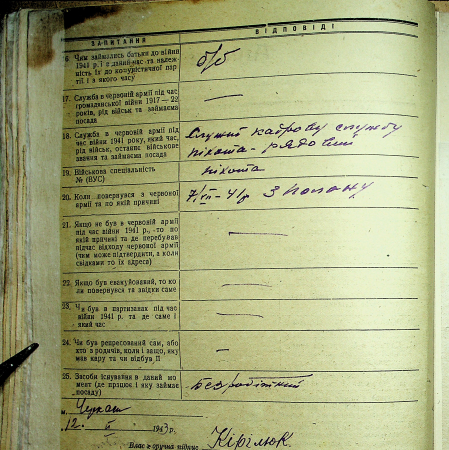 ЗАПИТАННЯ
ВІДПОВІДІ
16. Чим займались батьки до війни
1941 р. і в даний час та належ-
ність їх до комуністичної пар-
тії і з якого часу
б/б
17. Служба в червоній армії під час
громадянської війни 1917—22
років, рід військ та займаєма
посада
—
18. Служба в червоній армії під
час війни 1941 року, який час,
рід військ, останнє військове
звання та займаєма посада
Служив кадрову службу
піхота - рядовий
19. Військова спеціальність
№ (ВУС)
піхота
20. Коли повернувся з червоної
армії та по якій причині
7/ІІ - 41 р. З полону
21. Якщо не був в червоній армії
під час війни 1941 р., то по
якій причині та де перебував
підчас відходу червоної армії
(чим може підтвердити, а коли
свідками то їх адреса)
—
22. Якщо був евакуйований, то ко
ли повернувся та звідки саме
—
23. Чи був в партизанах під час
війни 1941 р. та де саме і
який час
—
24. Чи був репресований сам, або
хто з родичів, коли і защо, яку
мав кару та чи відбув її
—
25. Засоби існування в даний мо
мент (де працює і яку займає
посаду)
Безробітний
м.
12. ІІ 1943 р.
Власноручна підпис Кірілюк